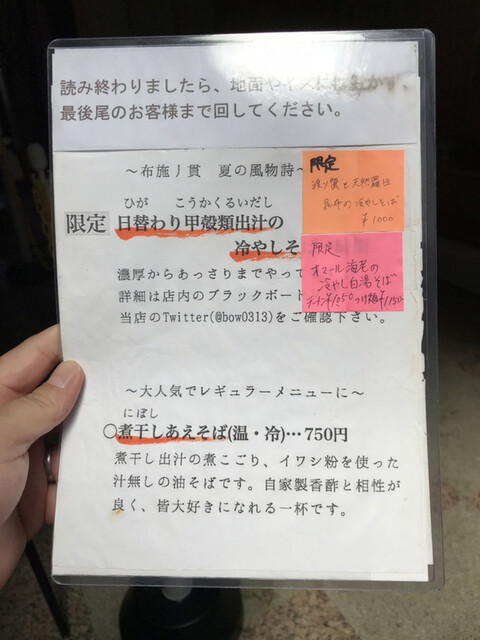 読み終わりましたら、地面や
最後尾のお客様まで回してください。
～布施丿貫 夏の風物詩～
ひが こうかくるいだし
限定 日替わり甲殻類出汁の
冷やしそ
濃厚からあっさりまでやって
詳細は店内のブラックボー
当店のTwitter(@bow0313)をご確認下さい。
限定
昆布の冷やしそば
¥1000
限定
オマール海老の
冷やし白湯そば
～大人気でレギュラーメニューに～
にぼし
○煮干しあえそば(温・冷)…750円
煮干し出汁の煮こごり、イワシ粉を使った
汁無しの油そばです。自家製香酢と相性が
良く、皆大好きになれる一杯です。